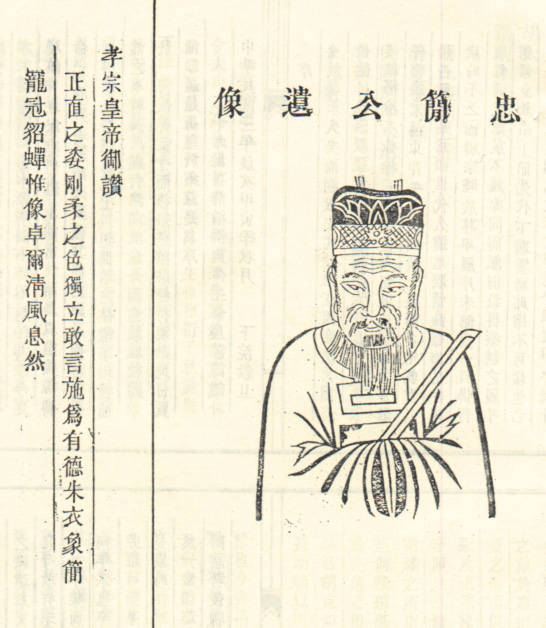 忠簡公遺像
孝宗皇帝御讚
正直之委剛柔之色獨立敢言施爲有德朱衣象簡
籠冠貂蟬惟像卓爾清風息然